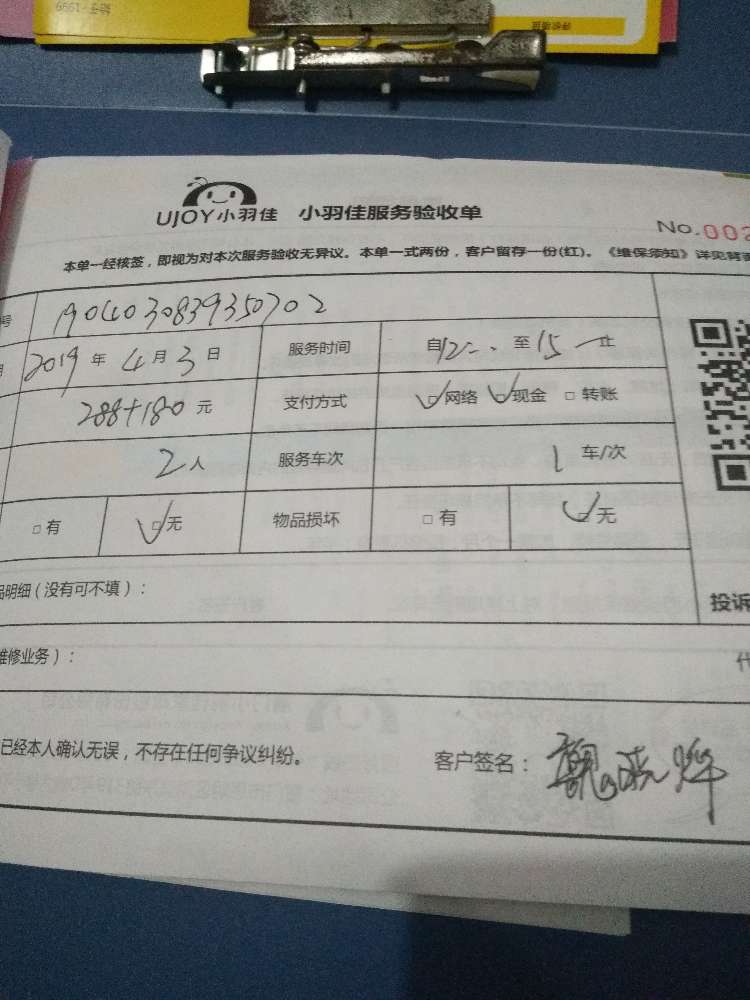 UJOY小羽佳 小羽佳服务验收单
No.002
本单一经核签，即视为对本次服务验收无异议。本单一式两份，客户留存一份(红)。《维保须知》详见背面
号 1904030839350702
2019年4月3日 服务时间 自12:00至15 止
288+180元 支付方式 ☑网络 ☑现金 □转账
2人 服务车次 1车/次
□有 ☑无 物品损坏 □有 ☑无
品明细（没有可不填）：
投诉
维修业务）：
代
已经本人确认无误，不存在任何争议纠纷。 客户签名：魏晓烨